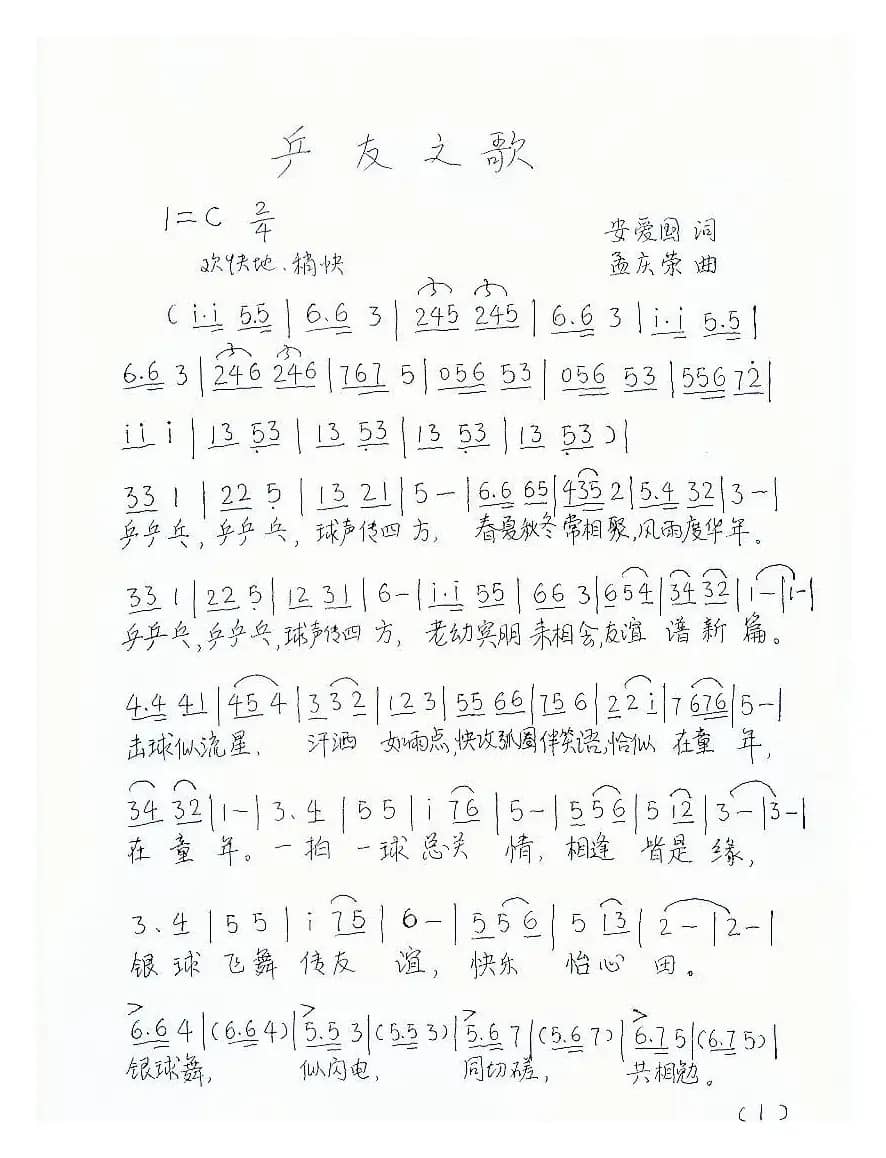 乒友之歌
1=C 2/4
安爱国 词
欢快地、稍快
孟庆荣 曲
(i.i 5.5 | 6.6 3 | 245 245 | 6.6 3 | i.i 5.5 |
6.6 3 | 246 246 | 767 5 | 056 53 | 056 53 | 556 72 |
ii i | 13 53 | 13 53 | 13 53 | 13 53 ) |
33 1 | 22 5 | 13 21 | 5 - | 6.6 65 | 435 2 | 5.4 32 | 3 - |
乒乒乓,乒乒乓,球声传四方,春夏秋冬常相聚,风雨度华年。
33 1 | 22 5 | 12 31 | 6 - | i.i 55 | 66 3 | 654 | 34 32 | 1 - | 1 - |
乒乒乓,乒乒乓,球声传四方,老幼宾朋来相会,友谊谱新篇。
4.4 41 | 45 4 | 3 32 | 12 3 | 55 66 | 75 6 | 22i | 7 676 | 5 - |
击球似流星,汗洒如雨点,快攻弧圈伴笑语,恰似在童年,
34 32 | 1 - | 3. 4 | 5 5 | i 76 | 5 - | 5 56 | 5 12 | 3 - | 3 - |
在童年。一拍一球总关情,相逢皆是缘,
3. 4 | 5 5 | i 75 | 6 - | 5 56 | 5 13 | 2 - | 2 - |
银球飞舞传友谊,快乐怡心田。
6.6 4 | (6.6 4) | 5.5 3 | (5.5 3) | 5.6 7 | (5.6 7) | 6.7 5 | (6.7 5) |
银球舞,似闪电,同切磋,共相勉。
(1)